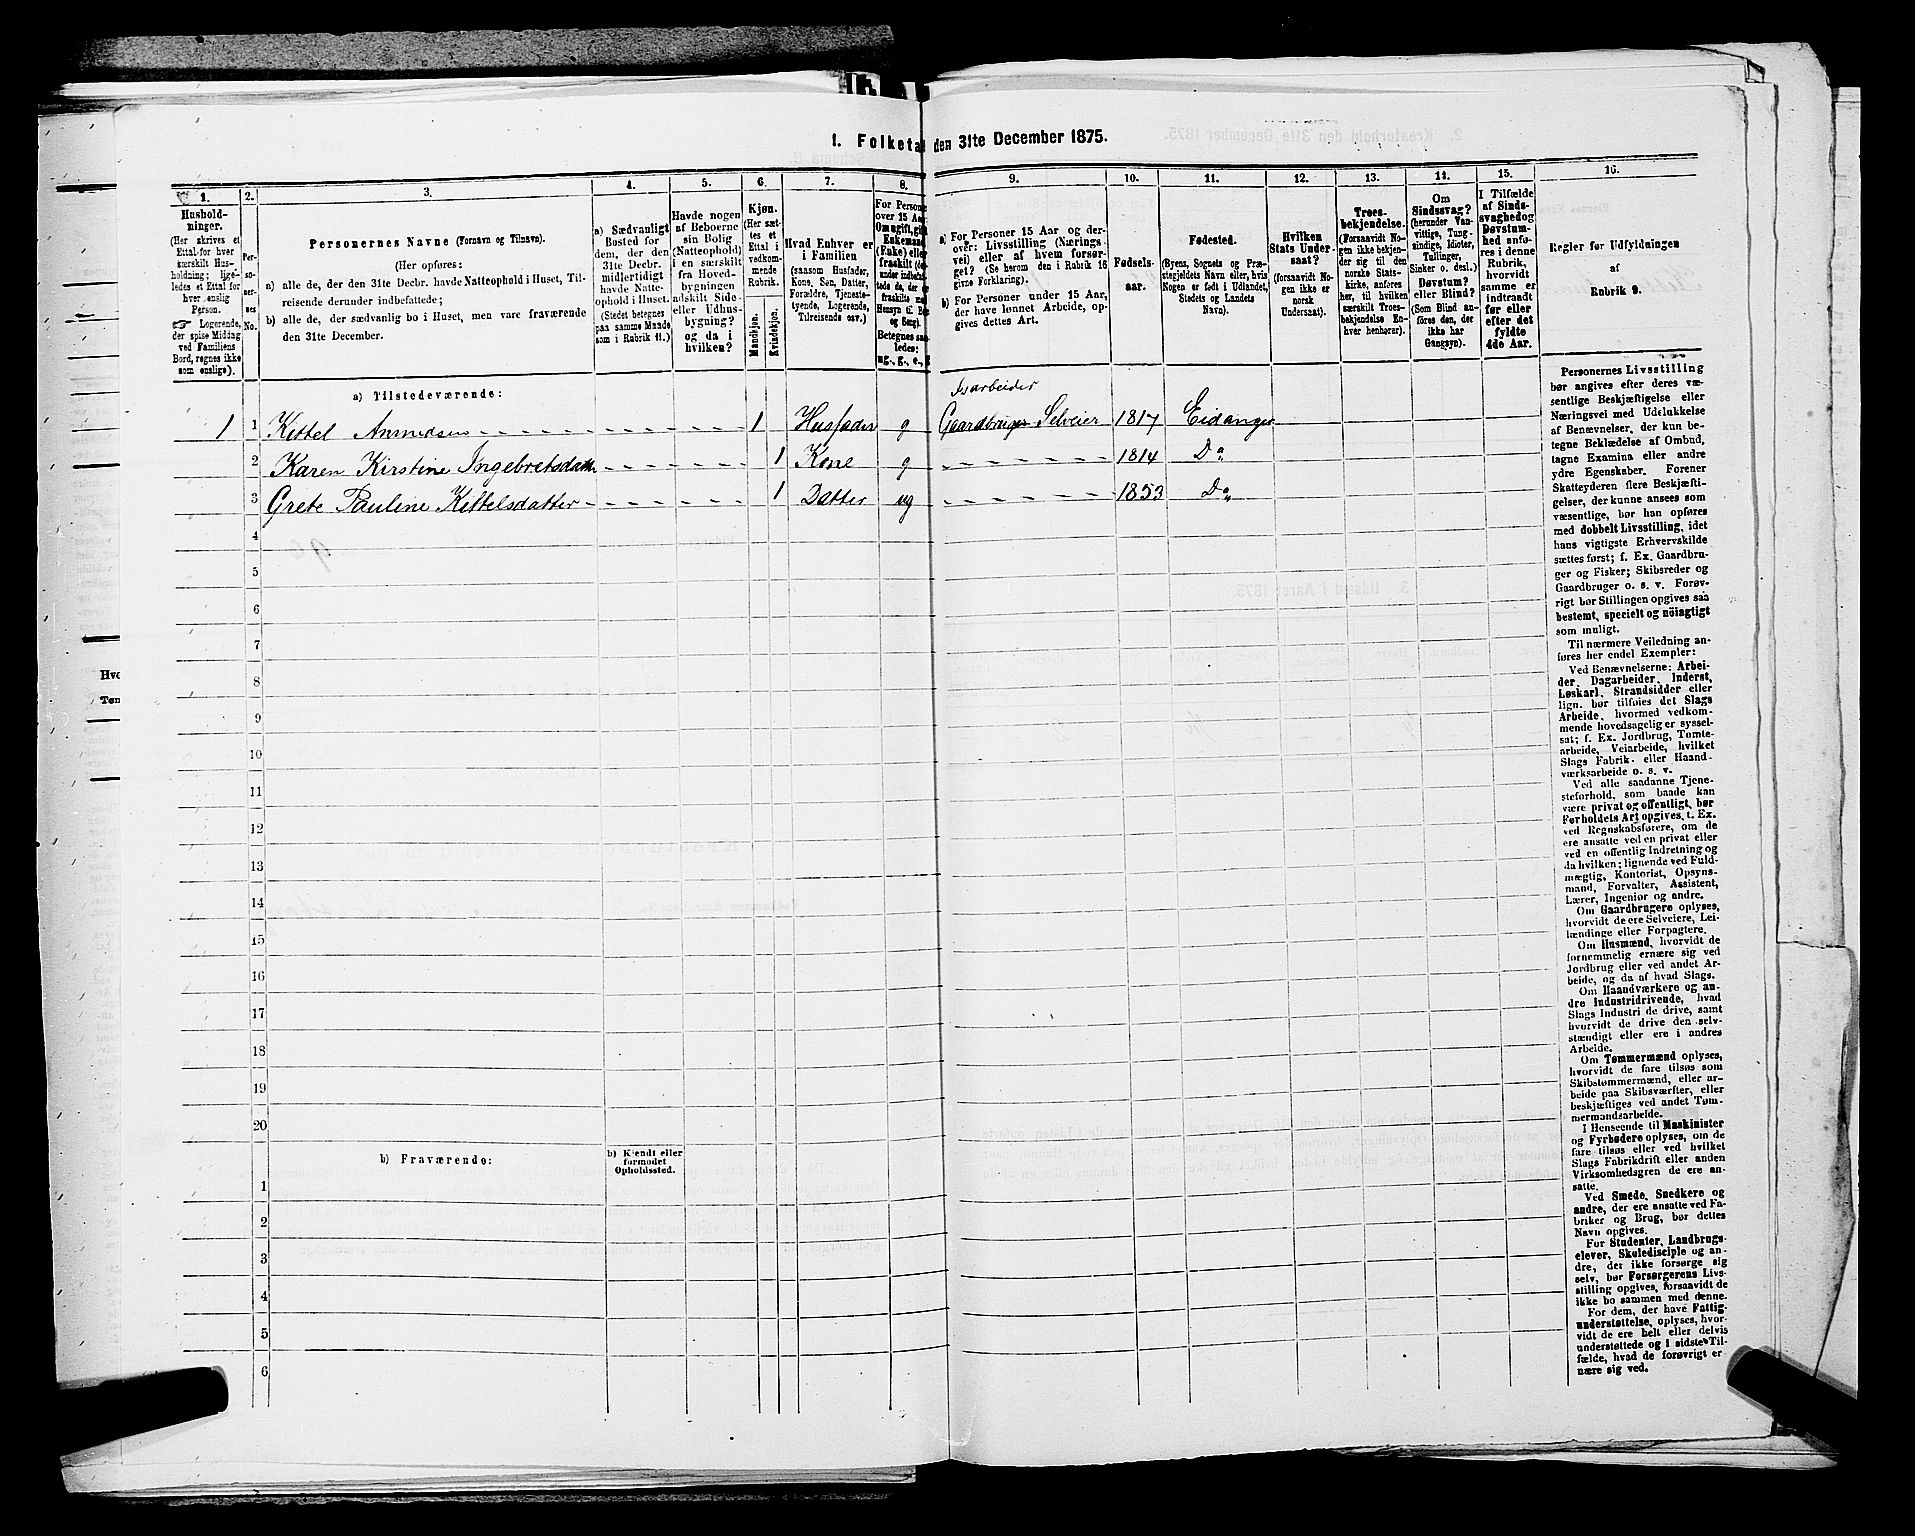 1. Folketa den 31te December 1875.
1. 2. 3. 4. 5. 6. 7. 8. 9. 10. 11. 12. 13. 14. 15. 16.
Hushold-
ninger.
(Her skrives et
Ettal for hver
særskilt Hus-
holdning; lige-
ledes et Ettal for
hver enslig
Person.
☞ Logerende,
der spise Middag
ved Familiens
Bord, regnes ikke
som enslige).
Per-
so-
ner-
nes
No.
Personernes Navne (Fornavn og Tilnavn).
(Her opføres:
a) alle de, der den 31te Decbr. havde Natteophold i Huset, Til-
reisende derunder indbefattede;
b) alle de, der sædvanlig bo i Huset, men vare fraværende
den 31te December.
a) Sædvanligt
Bosted for
dem, der den
31te Decbr.
midlertidigt
havde Natte-
ophold i Huset.
(Stedet betegnes
paa samme Maade
som i Rubrik 11.)
Havde nogen
af Beboerne
sin Bolig
(Natteophold)
i en særskilt
fra Hoved-
bygningen
adskilt Side-
eller Udhus-
bygning?
og da i
hvilken?
Kjøn.
(Her sæt-
tes et
Ettal i
vedkom-
mende
Rubrik.
Mandkjøn.
Kvindekjøn.
Hvad Enhver er
i Familien
(saasom Husfader,
Kone, Søn, Datter,
Forældre, Tjeneste-
tyende, Logerende,
Tilreisende osv.)
For Persone
over 15 Aar
Om ugift, gift
Enkemand
(Enke) eller
fraskilt
Betegnes saa-
ledes:
ug., g., e.,
a) For Personer 15 Aar og der-
over: Livsstilling (Nærings-
vei) eller af hvem forsør-
get? (Se herom den i Rubrik 16
givne Forklaring).
b) For Personer under 15 Aar,
der have lønnet Arbeide, op-
gives dettes Art.
Fødsels-
aar.
Fødested.
(Byens, Sognets og Præ-
stegjeldets Navn eller, hvis
Nogen er født i Udlandet,
Stedets og Landets
Navn).
Hvilken
Stats Under-
saat?
(forsaavidt No-
gen ikke er
norsk
Undersaat).
Troes-
bekjendelse.
(Forsaavidt No-
gen ikke bekjen-
der sig til den
norske Stats-
kirke, anføres
her, til hvilken
særskilt Troes-
bekjendelse En-
hver henhører).
Om
Sindssvag?
(herunder Van-
vittige, Tung-
sindige, Idioter,
Tullinger,
Sinker o. desl.)
Døvstum?
eller Blind?
(Som Blind an-
føres den, der
ikke har
Gangsyn).
I Tilfælde
af Sinds-
svaghed og
Døvstum-
hed anfø-
res i denne
Rubrik,
hvorvidt
samme er
indtraadt
før eller
efter det
fyldte
4de Aar.
Regler før Udfyldningen
af
Rubrik 9.
a) Tilstedeværende:
1 1 Kittel 1 Husfader g Gaardbruger Selveier 1817 Eidanger
2 Karen Kirstine Ingebretsdatt. 1 Kone g 1814 Do
3 Grete Pauline Kittelsdatter 1 Datter ug 1853 Do
4
5
6
7
8
9
10
11
12
13
14
15
16
17
18
19
20
b) Fraværende:
b) Kjendt eller
formodet
Opholdssted.
1
2
3
4
5
6
Personernes Livsstilling
bør angives efter deres væ-
sentlige Beskjæftigelse eller
Næringsvei med Udelukkelse
af Benævnelser, der kun be-
tegne Beklædelse af Ombud,
tagne Examina eller andre
ydre Egenskaber. Forener
Skatteyderen flere Beskjæfti-
gelser, der kunne ansees som
væsentlige, bør han opføres
med dobbelt Livsstilling, idet
hans vigtigste Erhvervskilde
sættes først; f. Ex. Gaardbru-
ger og Fisker; Skibsreder og
Gaardbruger o. s. v. Forøv-
rigt bør Stillingen opgives saa
bestemt, specielt og nöiagtigt
som muligt.
Til nærmere Veiledning an-
føres her endel Exempler:
Ved Benævnelserne: Arbei-
der, Dagarbeider, Inderst,
Løskarl, Strandsidder eller
lign. bør tilføies det Slags
Arbeide, hvormed vedkom-
mende hovedsagelig er syssel-
sat; f. Ex. Jordbrug, Tomte-
arbeide, Veiarbeide, hvilket
Slags Fabrik- eller Haand-
værksarbeide o. s. v.
Ved alle saadanne Tjene-
steforhold, som baade kan
være privat og offentligt, bør
Forholdets Art opgives, t. Ex.
ved Regnskabsførere, om de
ere ansatte ved en privat eller
ved en offentlig Indretning og
da hvilken; lignende ved Fuld-
mægtig, Kontorist, Opsyns-
mand, Forvalter, Assistent,
Lærer, Ingeniør og andre.
Om Gaardbrugere oplyses,
hvorvidt de ere Selveiere, Lei-
lændinge eller Forpagtere.
Om Husmænd, hvorvidt de
fornemmelig ernære sig ved
Jordbrug eller ved andet Ar-
beide, og da af hvad Slags.
Om Haandværkere og an-
dre Industridrivende, hvad
Slags Industri de drive, samt
hvorvidt de drive den selv-
stændigt eller ere i andres
Arbeide.
Om Tømmermænd oplyses,
hvorvidt de fare tilsøs som
Skibstømmermænd, eller ar-
beide paa Skibsværfter, eller
beskjæftiges ved andet Tøm-
mermandsarbeide.
I Henseende til Maskinister
og Fyrbødere oplyses, om de
fare tilsøs eller ved hvilket
Slags Fabrikdrift eller anden
Virksomhedsgren de ere an-
satte.
Ved Smede, Snedkere og
andre, der ere ansatte ved Fa-
briker og Brug, bør dettes
Navn opgives.
For Studenter, Landbrugs-
elever, Skoledisciple og an-
dre, der ikke forsørge sig
selv, bør Forsørgerens Livs-
stilling opgives, forsaavidt de
ikke bo sammen med denne.
For dem, der have Fattig-
understøttelse, oplyses, hvor-
vidt de ere helt eller delvis
understøttede og i sidste Til-
fælde, hvad de forøvrigt er-
nære sig ved.